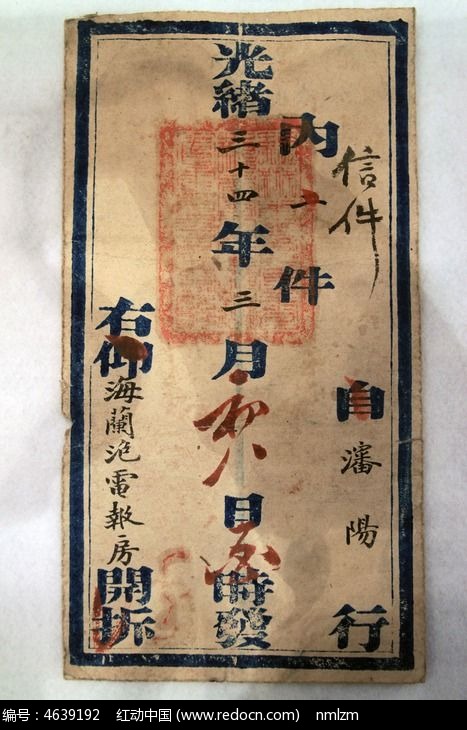 信件
自瀋陽行
内件
光緒三十四年三月初八日時發
右仰海蘭泡電報房開拆
编号：4639192 红动中国 (www.redocn.com) nmlzm